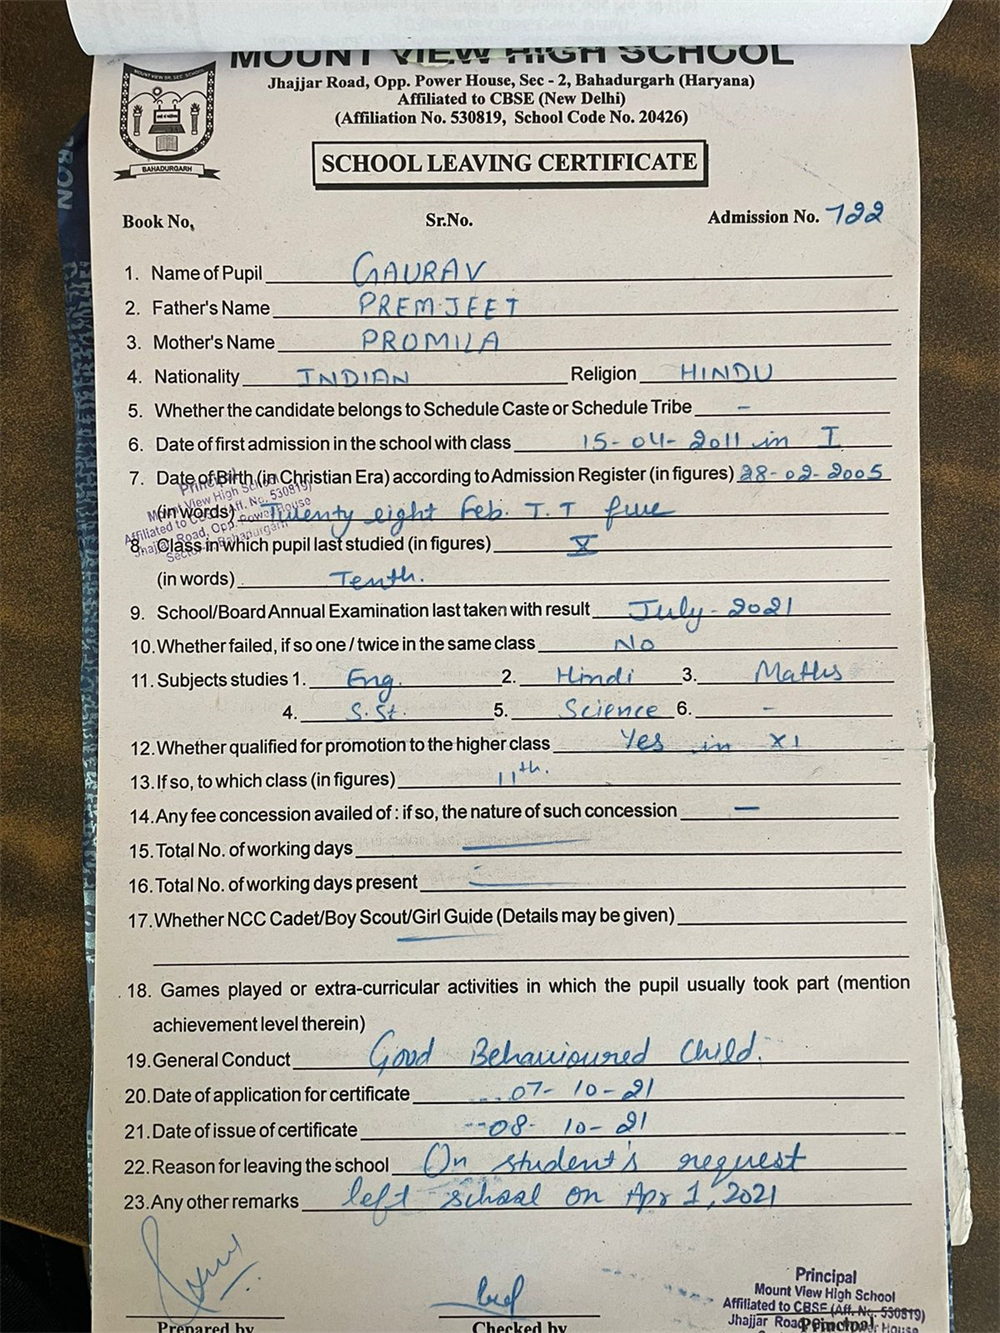 MOUNT VIEW HIGH SCHOOL
Jhajjar Road, Opp. Power House, Sec - 2, Bahadurgarh (Haryana)
Affiliated to CBSE (New Delhi)
(Affiliation No. 530819, School Code No. 20426)
MOUNT VIEW SR. SEC. SCHOOL
BAHADURGARH
SCHOOL LEAVING CERTIFICATE
Book No. Sr.No. Admission No. 722
1. Name of Pupil GAURAV
2. Father's Name PREMJEET
3. Mother's Name PROMILA
4. Nationality INDIAN Religion HINDU
5. Whether the candidate belongs to Schedule Caste or Schedule Tribe -
6. Date of first admission in the school with class 15-04-2011 in I
7. Date of Birth (in Christian Era) according to Admission Register (in figures) 28-02-2005
(in words) Twenty eight Feb. T.T five
Principal
Mount View High School
Affiliated to CBSE (Aff. No. 530819)
Jhajjar Road, Opp. Power House
8. Class in which pupil last studied (in figures) X
(in words) Tenth.
9. School/Board Annual Examination last taken with result July-2021
10. Whether failed, if so one / twice in the same class No
11. Subjects studies 1. Eng. 2. Hindi 3. Maths
4. S.St. 5. Science 6. -
12. Whether qualified for promotion to the higher class Yes in XI
13. If so, to which class (in figures) 11th.
14. Any fee concession availed of : if so, the nature of such concession —
15. Total No. of working days —
16. Total No. of working days present —
17. Whether NCC Cadet/Boy Scout/Girl Guide (Details may be given)
18. Games played or extra-curricular activities in which the pupil usually took part (mention
achievement level therein)
19. General Conduct Good Behavioured Child.
20. Date of application for certificate 07-10-21
21. Date of issue of certificate 08-10-21
22. Reason for leaving the school On student's request
23. Any other remarks left school on Apr 1, 2021
Principal
Mount View High School
Affiliated to CBSE (Aff. No. 530819)
Jhajjar Road, Power House
Prepared by Checked by Principal